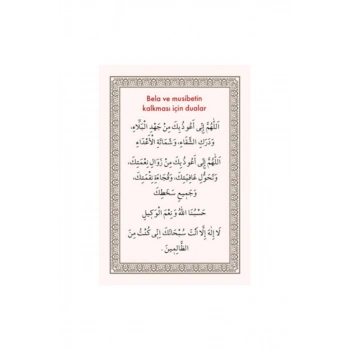 Bela ve musibetin
kalkması için dualar
اَللّٰهُمَّ إِنِّى أَعُوذُ بِكَ مِنْ جَهْدِ الْبَلَٓاءِ،
وَدَرَكِ الشَّقَاءِ، وَشَمَاتَةِ الْأَعْدَاءِ
اَللّٰهُمَّ إِنِّى أَعُوذُ بِكَ مِنْ زَوَالِ نِعْمَتِكَ،
وَتَحَوُّلِ عَافِيَتِكَ، وَفُجَاءَةِ نِقْمَتِكَ،
وَجَمِيعِ سَخَطِكَ
حَسْبُنَا اللّٰهُ وَنِعْمَ الْوَكِيلُ
لَا إِلٰهَ إِلَّا أَنْتَ سُبْحَانَكَ إِنِّى كُنْتُ مِنَ
الظَّالِمِينَ .